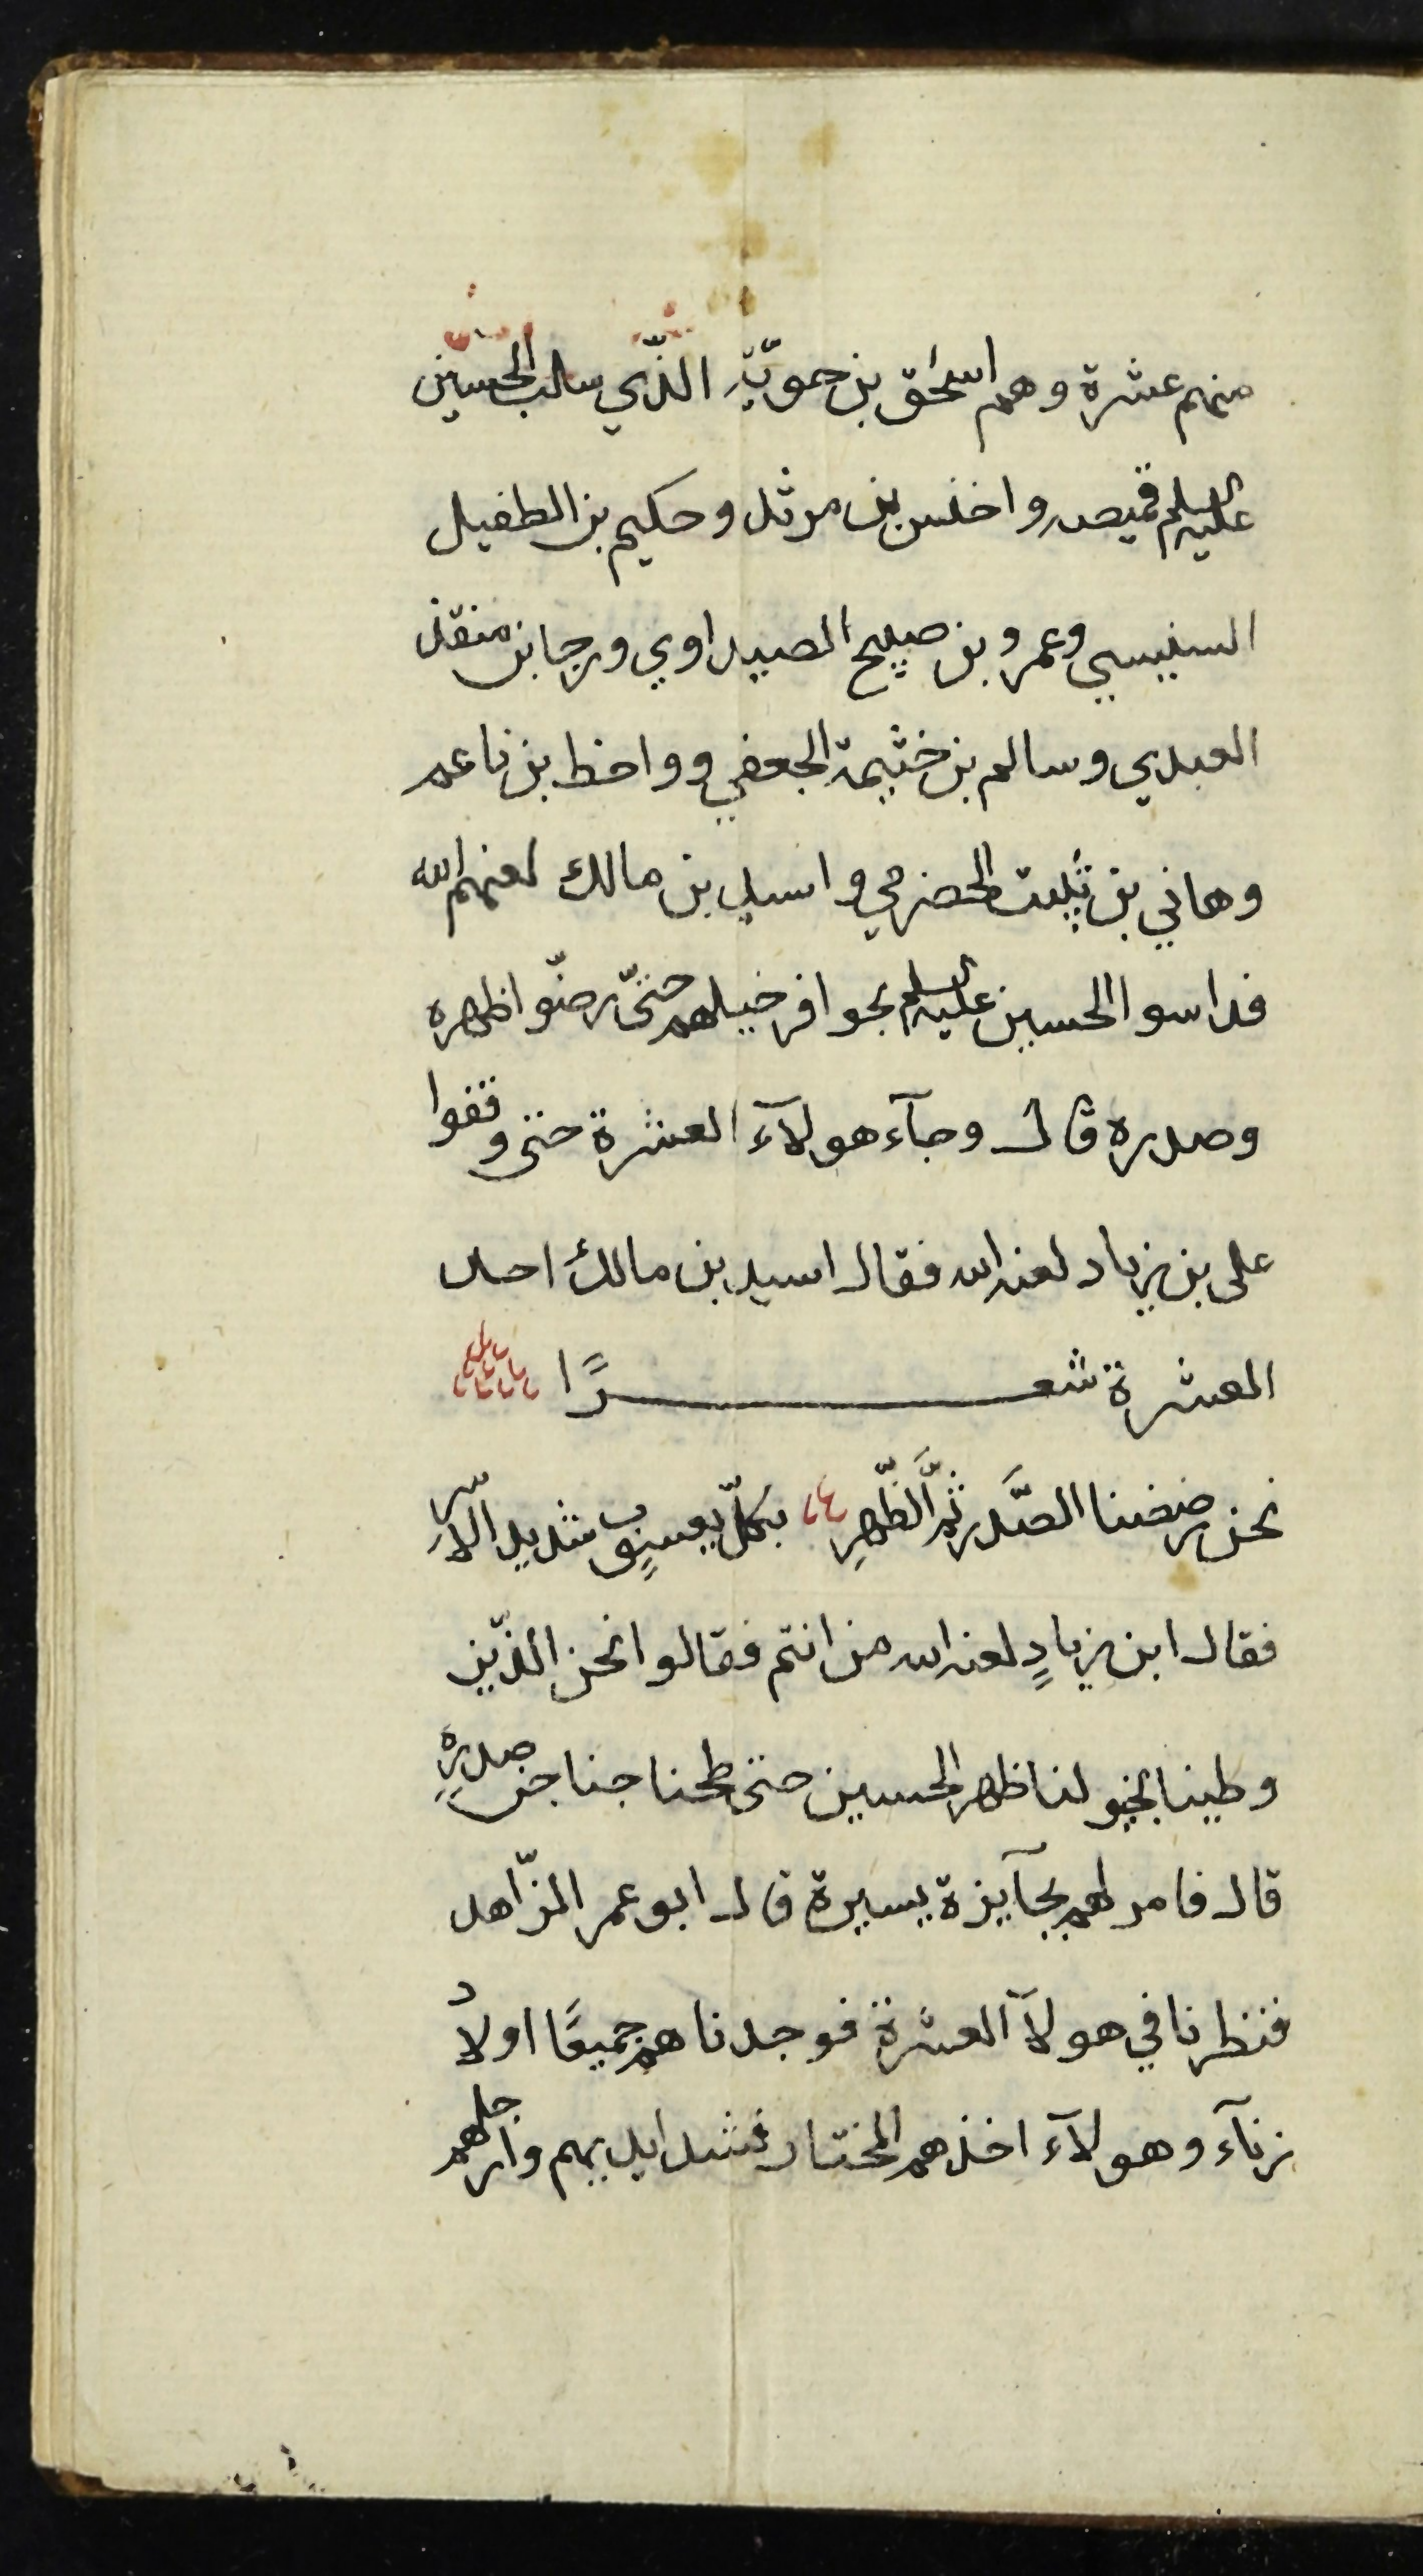 منهم عشرة وهم اسحٰق بن حمويّة الذّي سلب الحسين
عليه السلم قميصه واخنس بن مرثد وحكيم بن الطفيل
السنبسي وعمرو بن صبيح الصيداوي ورجا بن منقذ
العبدي وسالم بن خثيمة الجعفي وواخظ بن ناعم
وهاني بن ثبيت الحضرمي واسيد بن مالك لعنهم الله
فداسوا الحسين عليه السلم بحوافر خيلهم حتىّ رضّوا ظهره
وصدره قال وجآء هولآء العشرة حتى وقفوا
على بن زياد لعنه الله فقال اسيد بن مالك احد
العشرة شعرًا
نحن رضضنا الصَّدر ثمَّ الظّهرِ بكلّ يعسوبٍ شديد الاسرِ
فقال ابن زيادٍ لعنه الله من انتم فقالوا نحن الذّين
وطينا بخيولنا ظهر الحسين حتى طحنا جناجن صدرِهِ
قال فامر لهم بجآيزة يسيرة قال ابو عمر الزّاهد
فنظرنا في هولآ العشرة فوجدناهم جميعًا اولاد
زنآء وهولآء اخذهم المختار فشد ايديهم وارجلهم